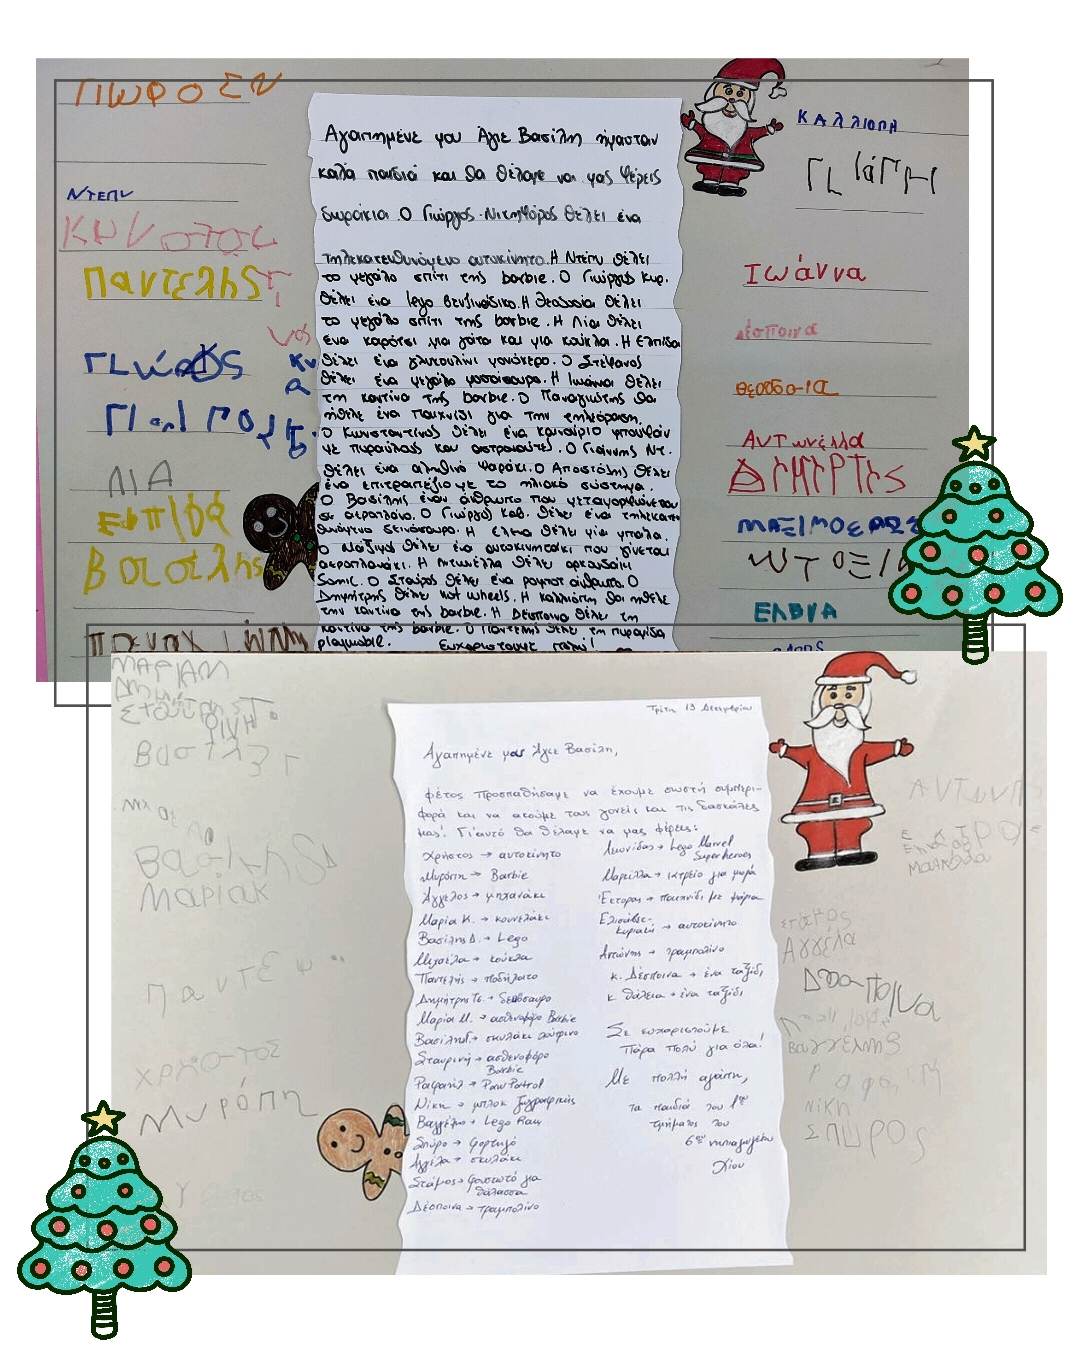 ΝΤΕΠΥ
Παντελης
ΛΙΑ
Βασιλης
Αγαπημένε μου Άγιε Βασίλη ήμασταν
καλά παιδιά και θα θέλαμε να μας φέρεις
δωράκια. Ο Γιώργος-Νικηφόρος θέλει ένα
τηλεκατευθυνόμενο αυτοκίνητο. Η Ντέπυ θέλει
το μεγάλο σπίτι της barbie. Ο Γιώργος Κυρ.
θέλει ένα lego βενζινάδικο. Η Θεοδοσία θέλει
το μεγάλο σπίτι της barbie. Η Λία θέλει
ένα καρότσι για γάτα και για κούκλα. Η Ελπίδα
θέλει ένα γλυκουλίνι μονόκερο. Ο Στέφανος
θέλει ένα μεγάλο μοσάσαυρο. Η Ιωάννα θέλει
τη καντίνα της barbie. Ο Παναγιώτης θα
ήθελε ένα παιχνίδι για την τηλεόραση.
Ο Κωνσταντίνος θέλει ένα καινούριο
με πυραύλους και αστροναύτες. Ο Γιάννης Ντ.
θέλει ένα αληθινό ψαράκι. Ο Αποστόλης θέλει
ένα επιτραπέζιο με το ηλιακό σύστημα.
Ο Βασίλης έναν άνθρωπο που μεταμορφώνεται
σε αεροπλάνο. Ο Γιώργος Καβ. θέλει ένα τηλεκατευ-
θυνόμενο δεινόσαυρο. Η Έλενα θέλει μία μπάλα.
Ο Μάξιμος θέλει ένα αυτοκινητάκι που γίνεται
αεροπλανάκι. Η Αντωνέλλα θέλει αρκουδάκι
Sonic. Ο Σταύρος θέλει ένα ρομποτ άνθρωπο. Ο
Δημήτρης θέλει hot wheels. Η Καλλιόπη θα ήθελε
την καντίνα της barbie. Η Δέσποινα θέλει τη
καντίνα της barbie. Ο Παντελής θέλει τη πυραμίδα
playmobil. Ευχαριστούμε πολύ!
ΚΑΛΛΙΟΠΗ
Ιωάννα
Δέσποινα
ΑΝΤωνέλλα
ΜΑΞΙΜΟΣ
ΜΑΡΙΑΜ
Βασιλης
ΜΑΡΙΑΚ
ΠαντΕ
ΧΡΗστος
Μυρόπη
Τρίτη 13 Δεκεμβρίου
Αγαπημένε μας Άγιε Βασίλη,
φέτος προσπαθήσαμε να έχουμε σωστή συμπερι-
φορά και να ακούμε τους γονείς και τις δασκάλες
μας! Γι'αυτό θα θέλαμε να μας φέρεις:
Χρήστος → αυτοκίνητο
Μυρόπη → Barbie
Άγγελος → μηχανάκι
Μαρία Κ. → κουνελάκι
Βασίλης Δ. → Lego
Μιχαέλα → κούκλα
Παντελής → ποδήλατο
Δημήτρης Τσ. → δεινόσαυρο
Μαρία Μ. → ασθενοφόρο Barbie
Βασίλης Γ. → σκυλάκι λούτρινο
Σταυρινή → ασθενοφόρο
Barbie
Ραφαήλ → Paw Patrol
Νίκη → μπλοκ ζωγραφικής
Βαγγέλης → Lego
Σπύρο → φορτηγό
Αγγέλα → σκυλάκι
Στάμος → φουσκωτό για
θάλασσα
Δέσποινα → τραμπολίνο
Λεωνίδας → Lego Marvel
Superheroes
Μαριλλια → ιατρείο για μωρά
Έκτορας → παιχνίδι με ψάρια
Ελισάβετ-
Κυριακή → αυτοκίνητο
Αντώνης → τραμπολίνο
κ. Δέσποινα → ένα ταξίδι
κ. Θάλεια → ένα ταξίδι
Σε ευχαριστούμε
Πάρα πολύ για όλα!
Με πολλή αγάπη,
τα παιδιά του 1ου
τμήματος του
6ου νηπιαγωγείου
Χίου
ΑΝΤωνης
στάμος
Αγγέλα
ΔΣσΠΟΙΝα
Βαγγέλης
Ραφαήλ
ΝΙΚΗ
ΣΠΥΡΟς